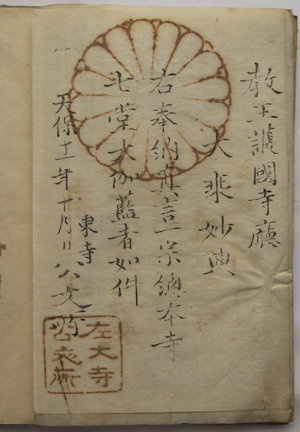 教王護國寺廰
大乘妙典
右奉納真言一宗總本寺
七堂大伽藍者如件
東寺
天保十一年十月日 公文所
左大寺
公文所